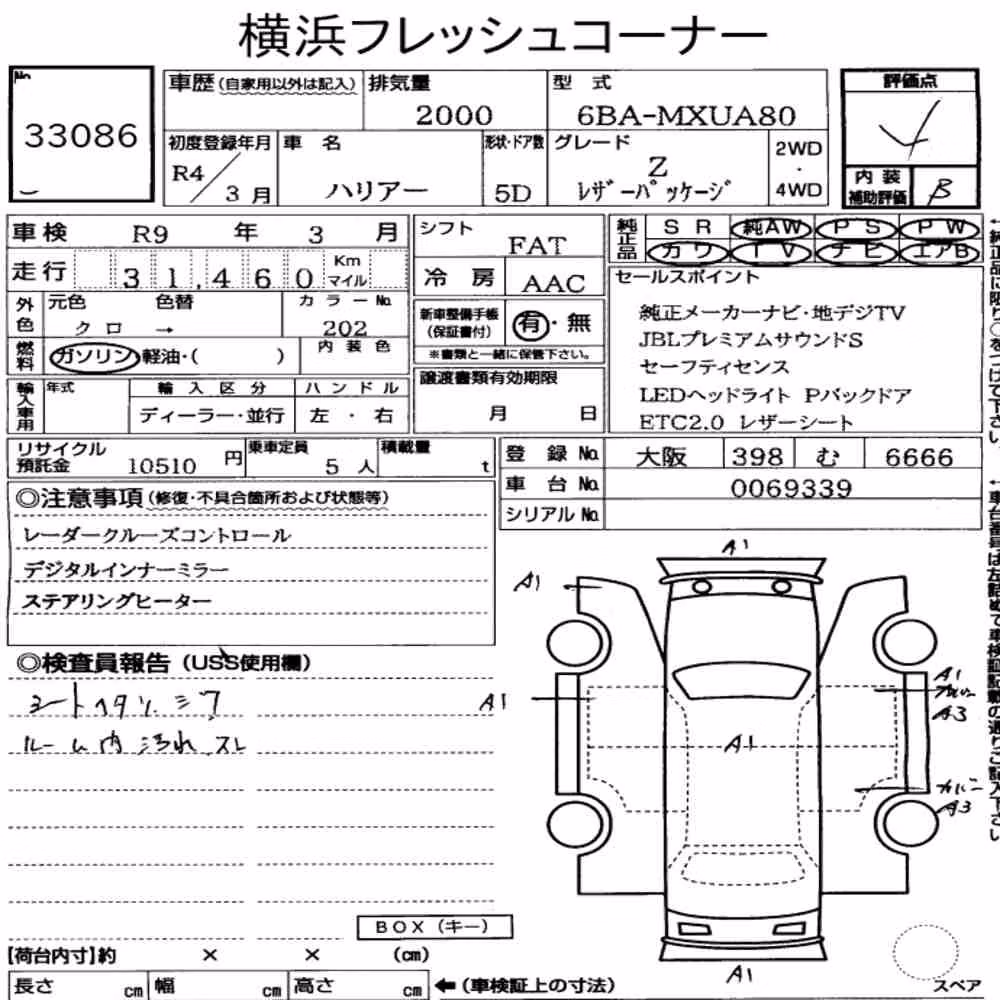 横浜フレッシュコーナー
No.
33086
車歴(自家用以外は記入)
排気量
2000
型 式
6BA-MXUA80
評価点
初度登録年月
R4/3月
車 名
ハリアー
形状・ドア数
5D
グレード
Z
レザーパッケージ
2WD
・
4WD
内 装
補助評価
B
車検 R9 年 3 月
走行 31,460 Km マイル
シフト
FAT
冷 房 AAC
純正品
SR 純AW PS PW
カワ TV ナビ エアB
外色
元色 色替
クロ →
カラーNo.
202
燃料
ガソリン・軽油・( )
内装色
新車整備手帳
(保証書付)
有・無
※書類と一緒に保管下さい。
セールスポイント
純正メーカーナビ・地デジTV
JBLプレミアムサウンドS
セーフティセンス
LEDヘッドライト Pバックドア
ETC2.0 レザーシート
輸入車用
年式
輸入区分
ディーラー・並行
ハンドル
左 ・ 右
譲渡書類有効期限
月 日
リサイクル
預託金
10510 円
乗車定員
5 人
積載量
t
登 録 No. 大阪 398 む 6666
車 台 No. 0069339
シリアル No.
◎注意事項(修復・不具合箇所および状態等)
レーダークルーズコントロール
デジタルインナーミラー
ステアリングヒーター
◎検査員報告(USS使用欄)
シートヘタリ シワ
ルーム内 汚れ スレ
A1
A1
A1
A1
A1
A3
カバー
A3
A1
BOX(キー)
【荷台内寸】約 × × (cm)
長さ cm 幅 cm 高さ cm ←(車検証上の寸法)
スペア